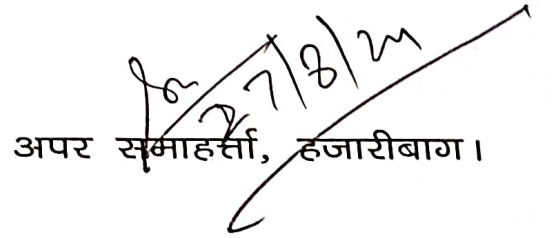 27/8/24
अपर समाहर्त्ता, हजारीबाग।